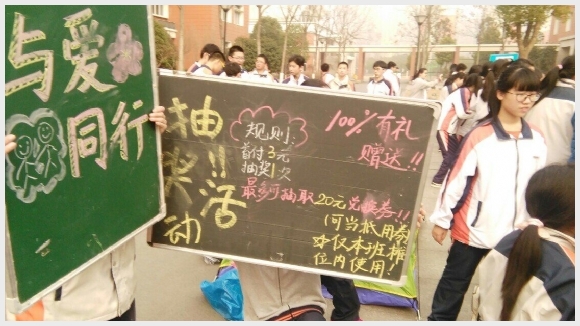 与爱
同行
抽奖!!活动
规则:
首付3元
抽奖1次
最多可抽取20元兑换券!!
(可当抵用券)
仅本班摊
位内使用!
100%有礼
赠送!!